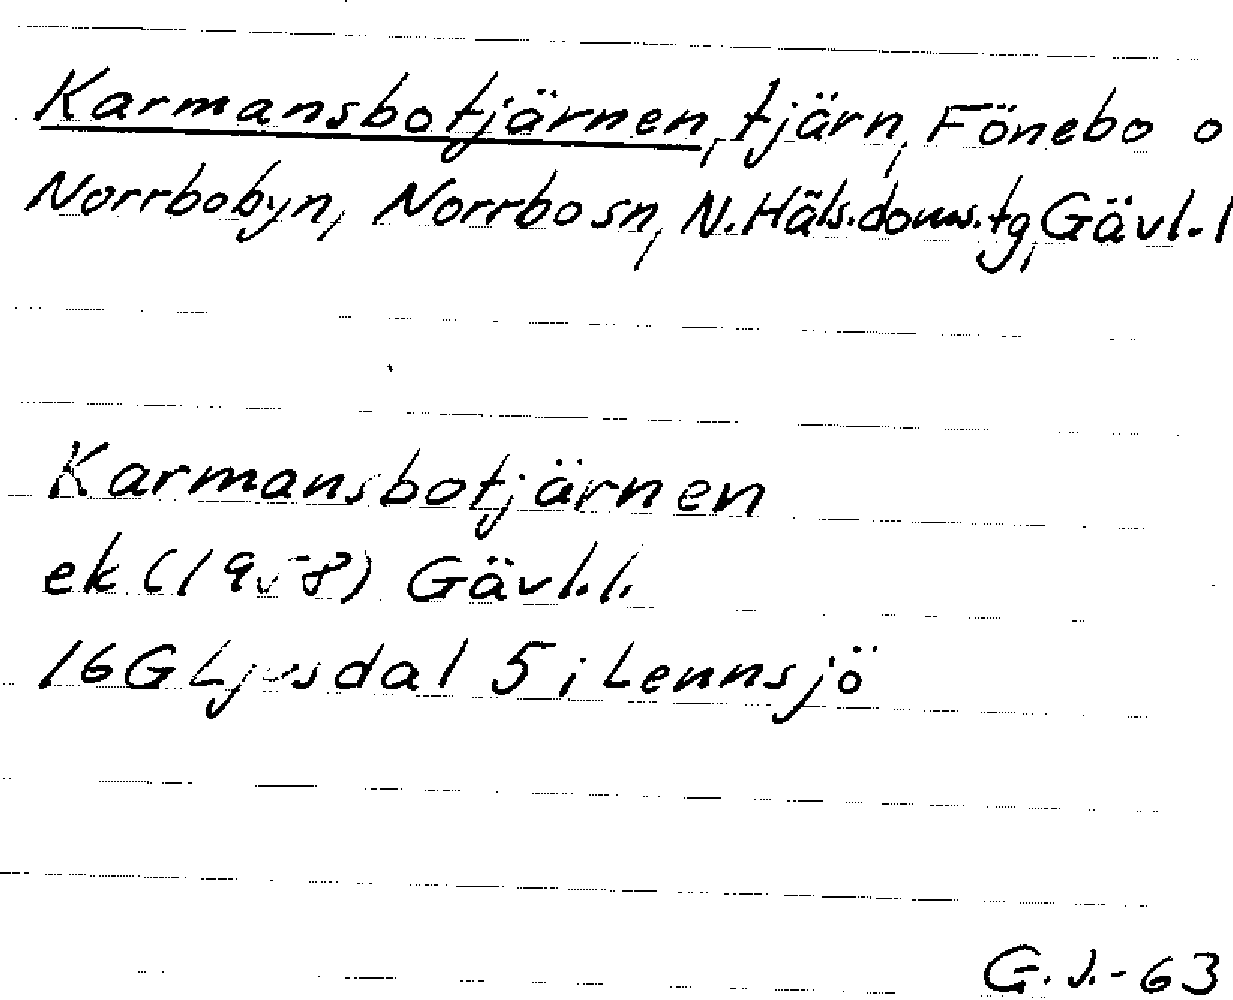 Karmansbotjärnen, tjärn, Fönebo o
Norrbobyn, Norrbo sn, N. Häls. doms. tg, Gävl. l
Karmansbotjärnen
ek (1958) Gävl. l.
16G Ljusdal 5 i Lennsjö
G. J. - 63